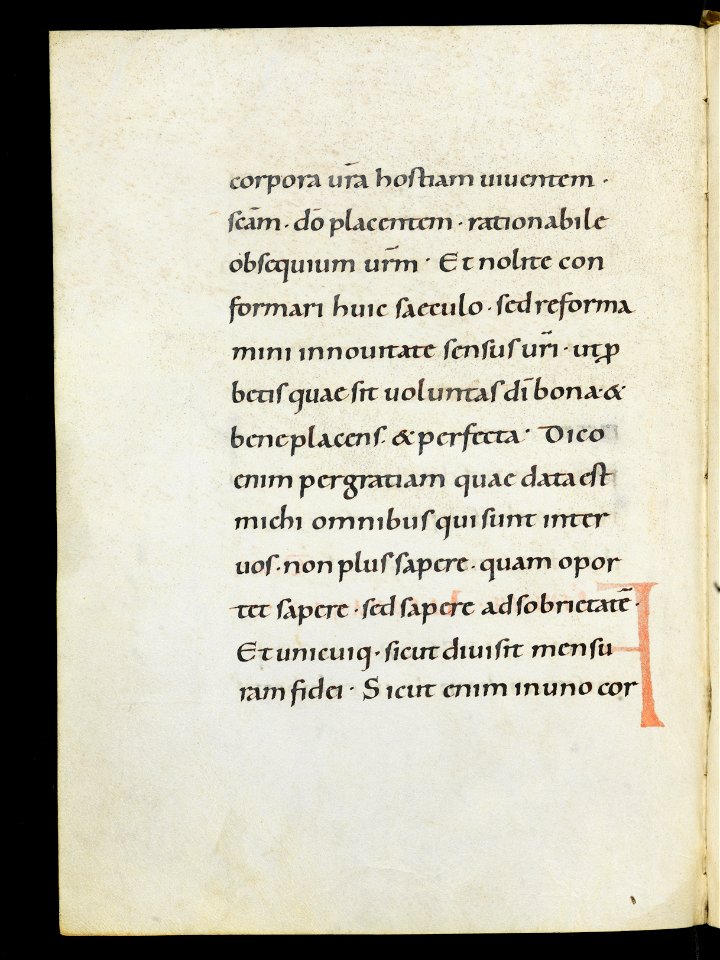 corpora ur̄a hostiam uiuentem ·
sc̄am · dō placentem · rationabile
obsequium ur̄m · Et nolite con
formari huic saeculo · sed reforma
mini in nouitate sensus ur̄i · ut ꝓ
betis quae sit uoluntas dī bona · &
beneplacens · & perfecta · Dico
enim per gratiam quae data est
michi omnibus qui sunt inter
uos · non plus sapere · quam opor
tet sapere · sed sapere ad sobrietatē ·
Et unicuiq · sicut diuisit mensu
ram fidei · Sicut enim in uno cor